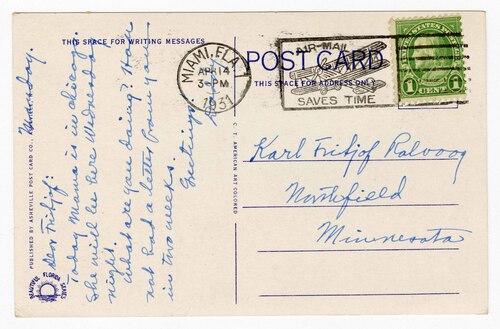 THIS SPACE FOR WRITING MESSAGES
POST CARD
THIS SPACE FOR ADDRESS ONLY
MIAMI, FLA.
APR 14
3-PM
1931
AIR-MAIL
SAVES TIME
UNITED STATES POSTAGE
1 CENT 1
Dear Fritjof:
Today Mama is in
She will be here Wednesday
night.
What are you doing? Have
not had a letter from you
in two weeks.
Greetings
Karl Fritjof Rolvoog
Northfield
Minnesota
PUBLISHED BY ASHEVILLE POST CARD CO.
C. T. AMERICAN ART COLORED
BEAUTIFUL FLORIDA SERIES